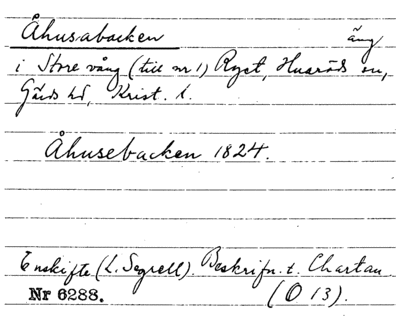 Åhusabacken äng
i Store vång (till nr 1) Ryet, Huaröds sn,
Gärds hd, Krist. l.
Åhusebacken 1824.
Enskifte (L. Segrell). Beskrifn. t. Chartan
Nr 6288. (O 13).